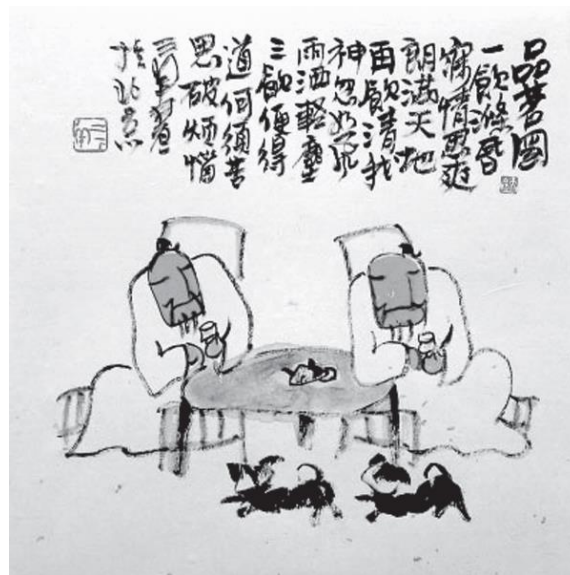 品茗圖
一飲滌昏
寐情思爽
朗滿天地
再飲清我
神忽如飛
雨洒輕塵
三飲便得
道何須苦
思破煩惱
於北京